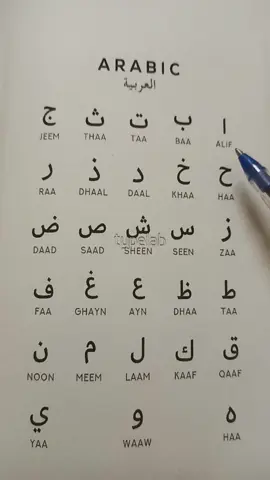 ARABIC
العربية
ا ب ت ث ج
ALIF BAA TAA THAA JEEM
ح خ د ذ ر
HAA KHAA DAAL DHAAL RAA
ز س ش ص ض
ZAA SEEN SHEEN SAAD DAAD
ط ظ ع غ ف
TAA DHAA AYN GHAYN FAA
ق ك ل م ن
QAAF KAAF LAAM MEEM NOON
ه و ي
HAA WAAW YAA